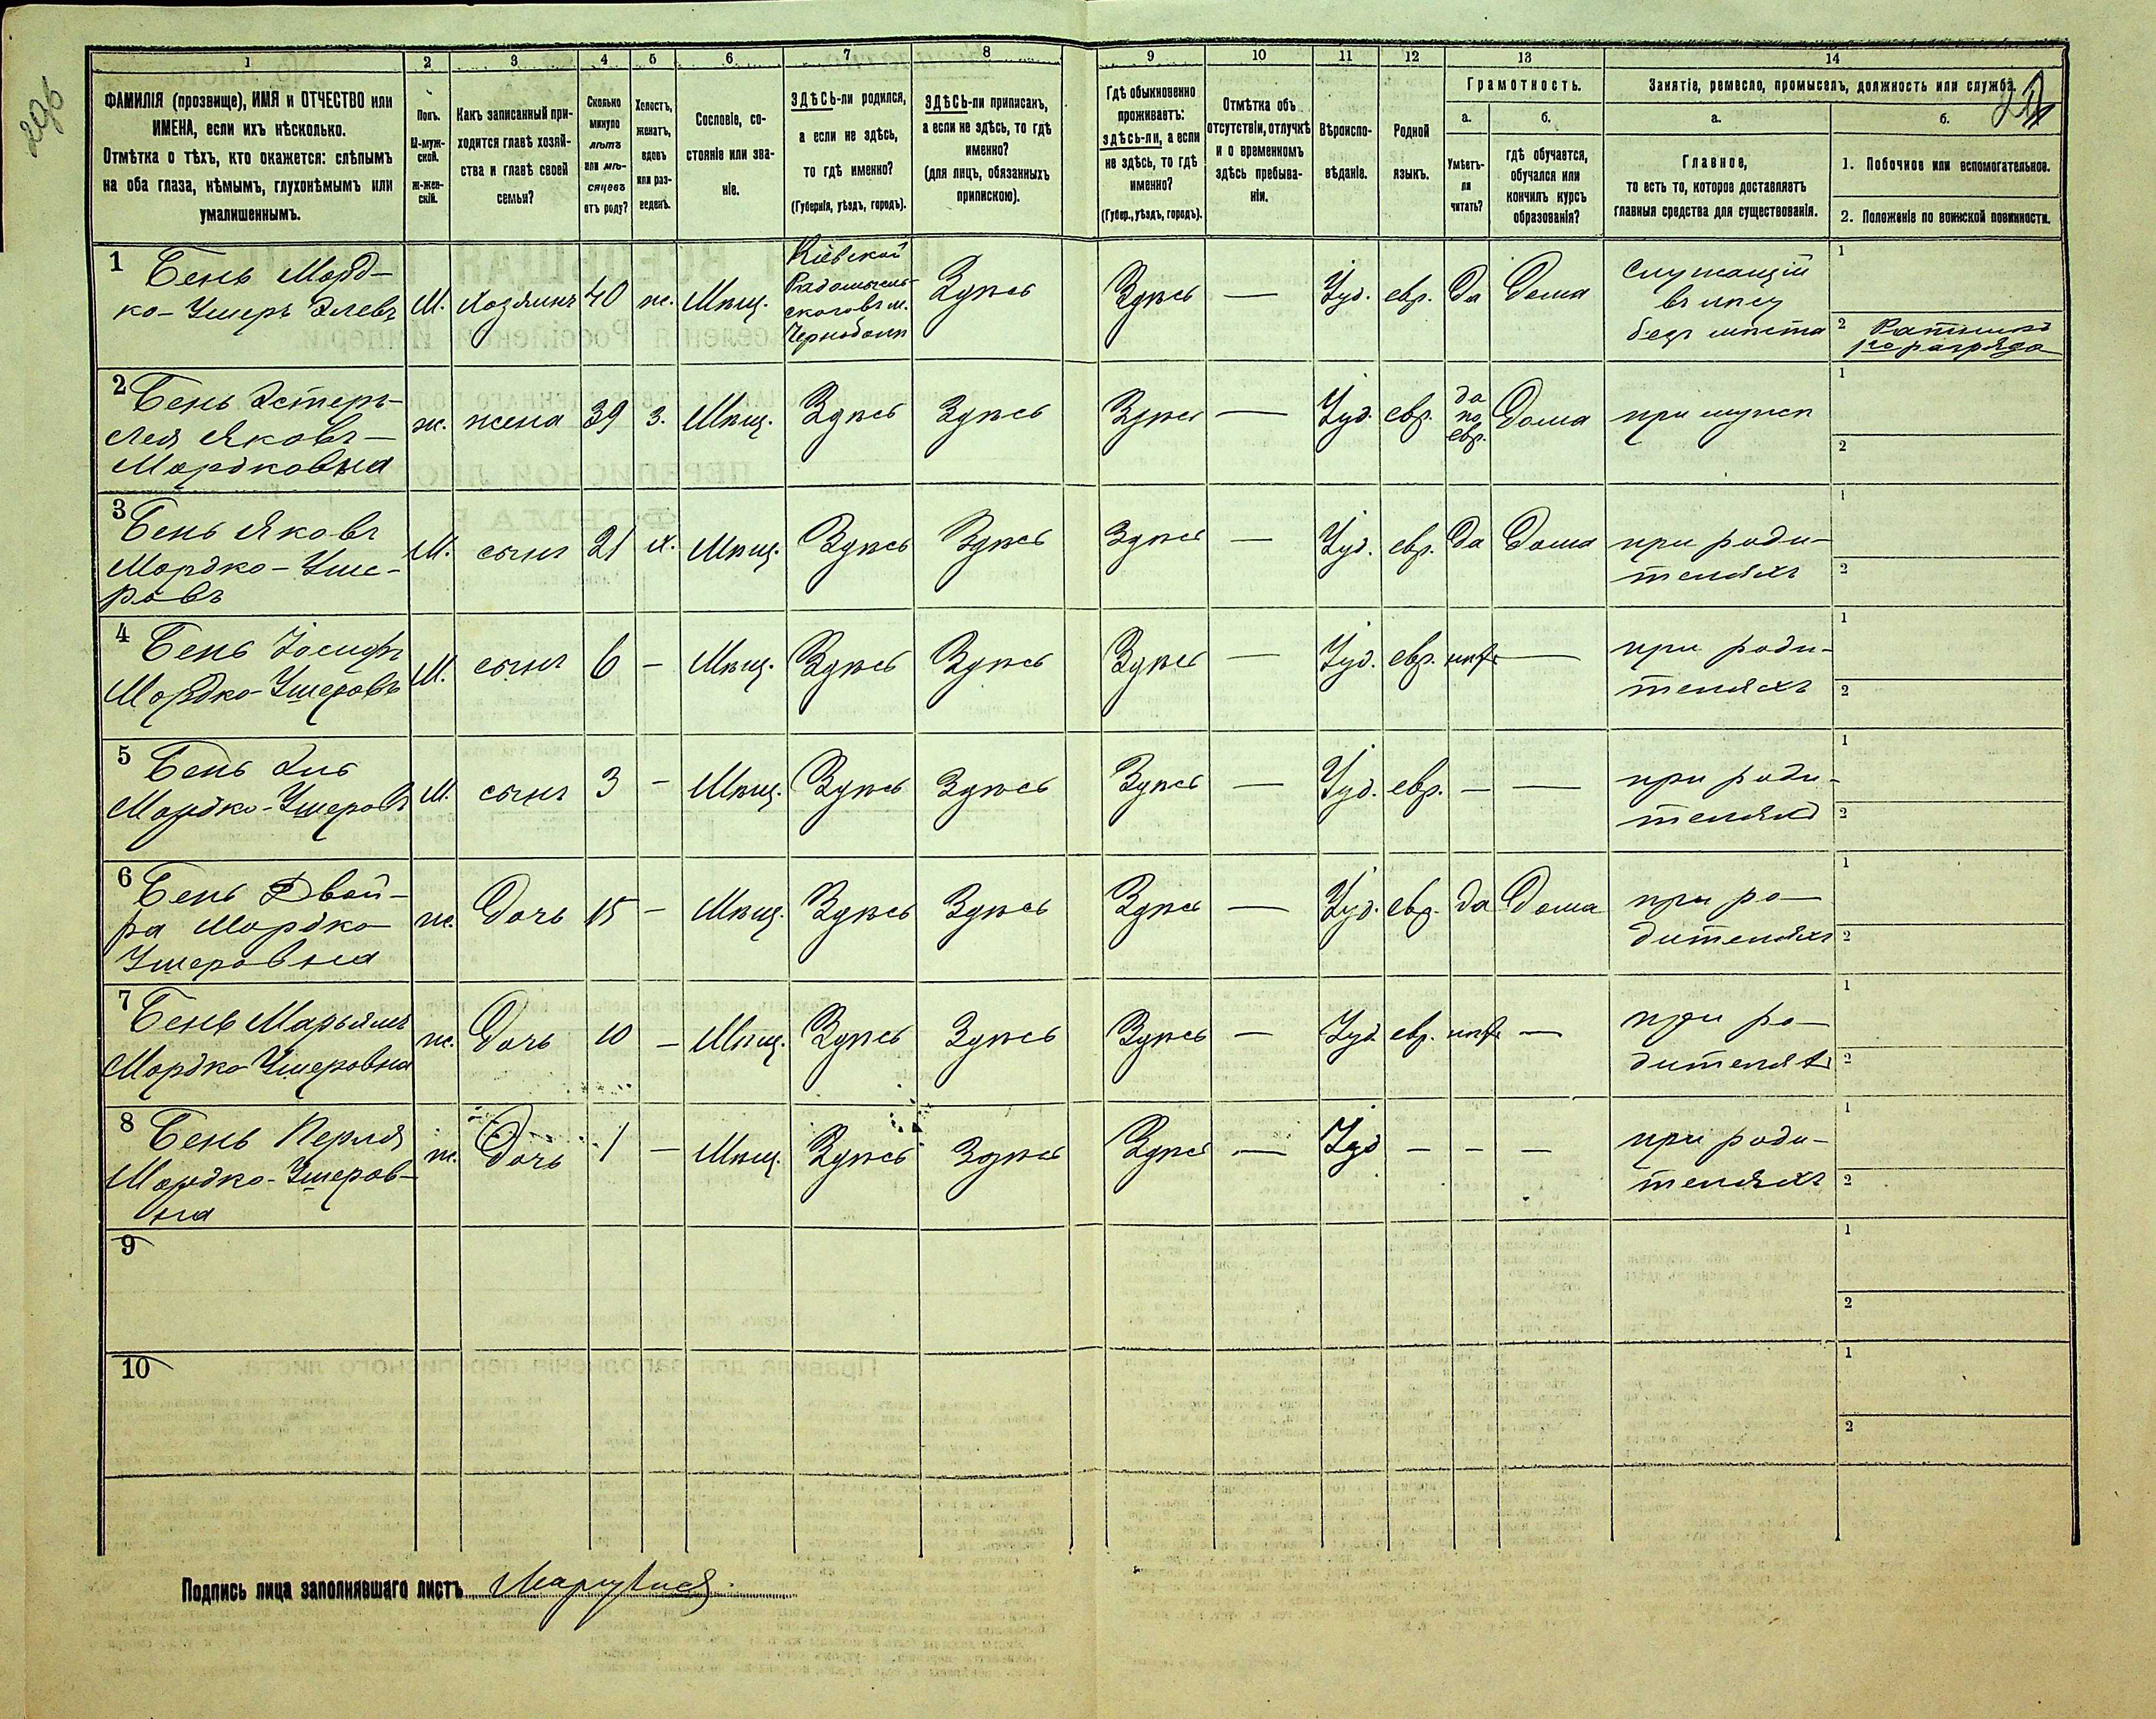 1 2 3 4 5 6 7 8 9 10 11 12 13 14
ФАМИЛІЯ (прозвище), ИМЯ и ОТЧЕСТВО или
ИМЕНА, если ихъ нѣсколько.
Отмѣтка о тѣхъ, кто окажется: слѣпымъ
на оба глаза, нѣмымъ, глухонѣмымъ или
умалишеннымъ.
Полъ.
М-муж-
ской.
Ж-жен-
скій.
Какъ записанный при-
ходится главѣ хозяй-
ства и главѣ своей
семьи?
Сколько
минуло
лѣтъ
или мѣ-
сяцевъ
отъ роду?
Холостъ,
женатъ,
вдовъ
или раз-
веденъ.
Сословіе, со-
стояніе или зва-
ніе.
ЗДѢСЬ-ли родился,
а если не здѣсь,
то гдѣ именно?
(Губернія, уѣздъ, городъ).
ЗДѢСЬ-ли приписанъ,
а если не здѣсь, то гдѣ
именно?
(для лицъ, обязанныхъ
припискою).
Гдѣ обыкновенно
проживаетъ:
здѣсь-ли, а если
не здѣсь, то гдѣ
именно?
(Губер., уѣздъ, городъ).
Отмѣтка объ
отсутствіи, отлучкѣ
и о временномъ
здѣсь пребыва-
ніи.
Вѣроиспо-
вѣданіе.
Родной
языкъ.
Грамотность.
а.
Умѣетъ-
ли
читать?
б.
гдѣ обучается,
обучался или
кончилъ курсъ
образованія?
Занятіе, ремесло, промыселъ, должность или служба.
а.
Главное,
то есть то, которое доставляетъ
главныя средства для существованія.
б.
1. Побочное или вспомогательное.
2. Положеніе по воинской повинности.
1 Бень Морд-
ко-Умеръ Элевъ
М. Хозяинъ 40 ж. Мѣщ.
Кіевской
Радомысль-
скаго въ м.
Чернобыли
Здѣсь Здѣсь — Іуд. евр. да Дома
Служащій
въ лѣсу
безъ мѣста
1
2 Ратникъ
1го разряда
2 Бень Эстеръ-
Лея Яковъ-
Мордковна
ж. жена 39 з. Мѣщ. Здѣсь Здѣсь Здѣсь — Іуд. евр.
да
по
евр.
Дома при мужѣ
1
2
3 Бень Яковъ
Мордко-Уме-
ровъ
М. сынъ 21 х. Мѣщ. Здѣсь Здѣсь Здѣсь — Іуд. евр. да Дома
при роди-
теляхъ
1
2
4 Бень Іосифъ
Мордко-Умеровъ
М. сынъ 6 — Мѣщ. Здѣсь Здѣсь Здѣсь — Іуд. евр. нѣтъ —
при роди-
теляхъ
1
2
5 Бень Эль
Мордко-Умеровъ
М. сынъ 3 — Мѣщ. Здѣсь Здѣсь Здѣсь — Іуд. евр. — —
при роди-
теляхъ
1
2
6 Бень Двой-
ра Мордко
Умеровна
ж. Дочь 15 — Мѣщ. Здѣсь Здѣсь Здѣсь — Іуд. евр. да Дома
при ро-
дителяхъ
1
2
7 Бень Марьямъ
Мордко Умеровна
ж. Дочь 10 — Мѣщ. Здѣсь Здѣсь Здѣсь — Іуд евр. нѣтъ —
при ро-
дителяхъ
1
2
8 Бень Перля
Мордко-Умеров-
на
ж. Дочь 1 — Мѣщ. Здѣсь Здѣсь Здѣсь — Іуд — — —
при роди-
теляхъ
1
2
9
1
2
10
1
2
Подпись лица заполнявшаго листъ